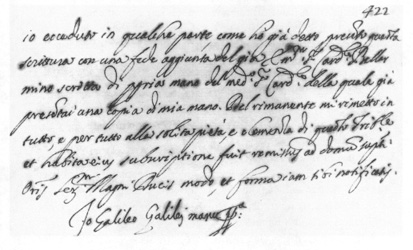 422
io ecceduto in qualche parte come ho già detto presento questa
scrittura con una fede aggiunta del già Em.mo S.r Card.l Bellar
mino scritta di ppria mano del med.o S.r Card.l della quale già
presentai una copia di mia mano. Del rimanente mi rimetto in
tutto, e per tutto alla solita pietà, e clemenza di questo Trib.le
et habita eius subscriptione fuit remissus ad domum sup.ti
Oris Ser.mi Magni Ducis modo et forma iam sibi notificatis.
Io Galileo Galilei manu pp.a